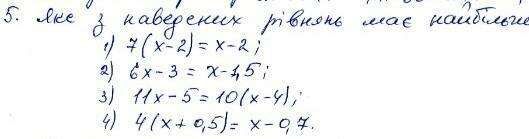 5. Яке з наведених рівнянь має найбільше
1) 7(x-2)=x-2;
2) 6x-3=x-1,5;
3) 11x-5=10(x-4);
4) 4(x+0,5)=x-0,7.